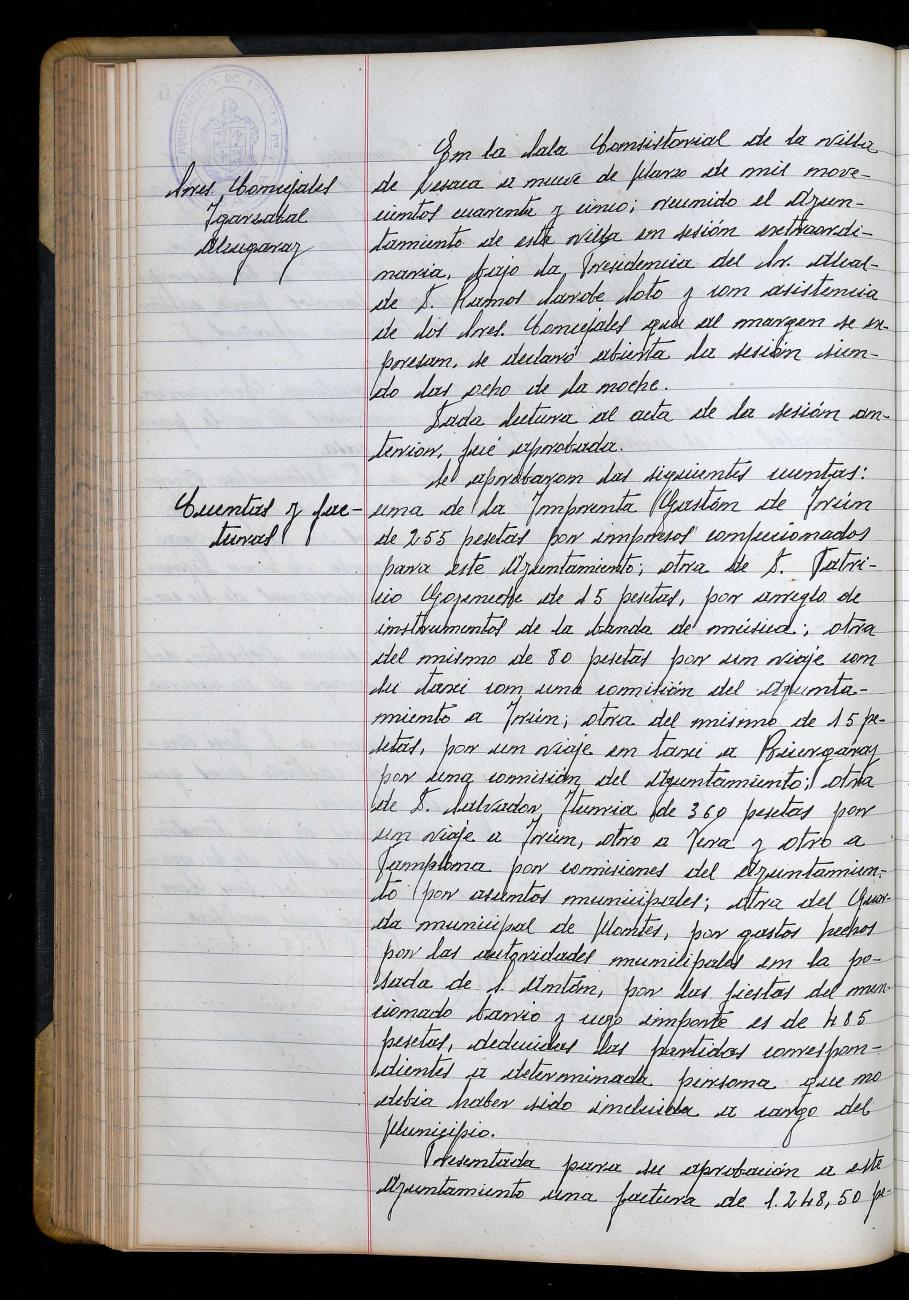 Sres. Concejales
Igarzabal
Alzugaray
En la Sala Consistorial de la villa
de Lesaca a nueve de Marzo de mil nove-
cientos cuarenta y cinco; reunido el Ayun-
tamiento de esta villa en sesión extraordi-
naria, bajo la Presidencia del Sr. Alcal-
de D. Ramos Sarobe Soto y con asistencia
de los Sres. Concejales que al margen se ex-
presan, se declaró abierta la sesión sien-
do las ocho de la noche.
Dada lectura al acta de la sesión an-
terior, fué aprobada.
Cuentas y fac-
turas
Se aprobaron las siguientes cuentas:
una de la Imprenta Gastón de Irún
de 255 pesetas por impresos confeccionados
para este Ayuntamiento; otra de D. Patri-
cio Goyeneche de 15 pesetas, por arreglo de
instrumentos de la banda de música; otra
del mismo de 80 pesetas por un viaje con
su taxi con una comisión del Ayunta-
miento a Irún; otra del mismo de 15 pe-
setas, por un viaje en taxi a
por una comisión del Ayuntamiento; otra
de D. Salvador Iturria de 360 pesetas por
un viaje a Irún, otro a Vera y otro a
Pamplona por comisiones del Ayuntamien-
to por asuntos municipales; otra del Guar-
da municipal de Montes, por gastos hechos
por las autoridades municipales en la po-
sada de S. Antón, por las fiestas del men-
cionado barrio y cuyo importe es de 485
pesetas, deducidas las partidas correspon-
dientes a determinada persona que no
debia haber sido incluida a cargo del
Municipio.
Presentada para su aprobación a este
Ayuntamiento una factura de 1.248,50 pe-